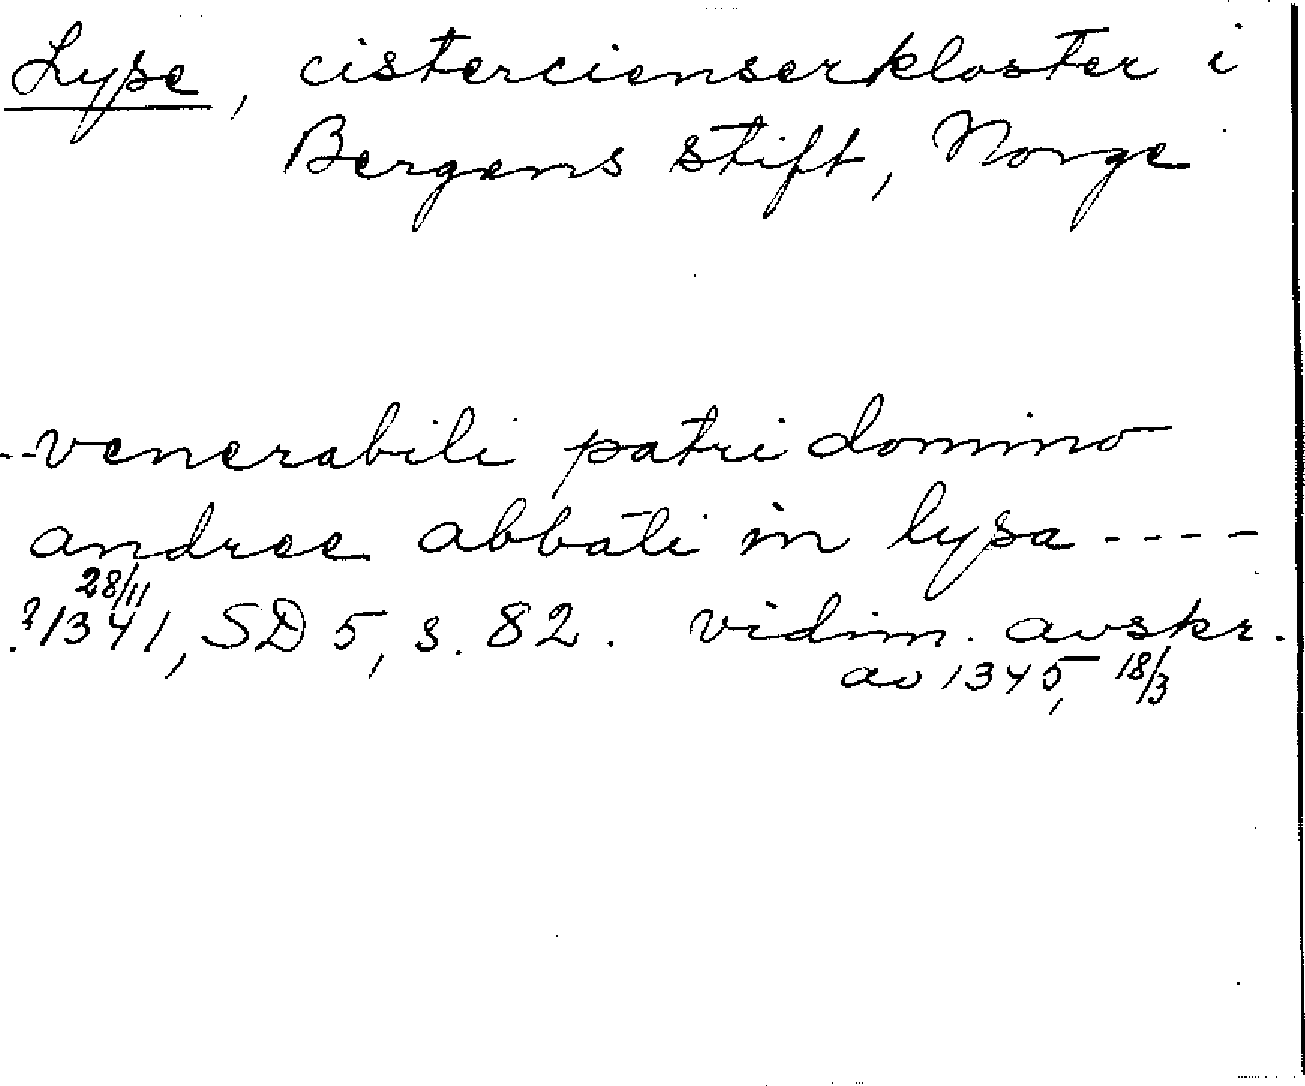 Lyse, cistercienserkloster i
Bergens stift, Norge
--venerabili patri domino
andree abbati in lysa ----
28/11
? 1341, SD 5, s. 82. vidim. avskr.
av 1345, 18/3